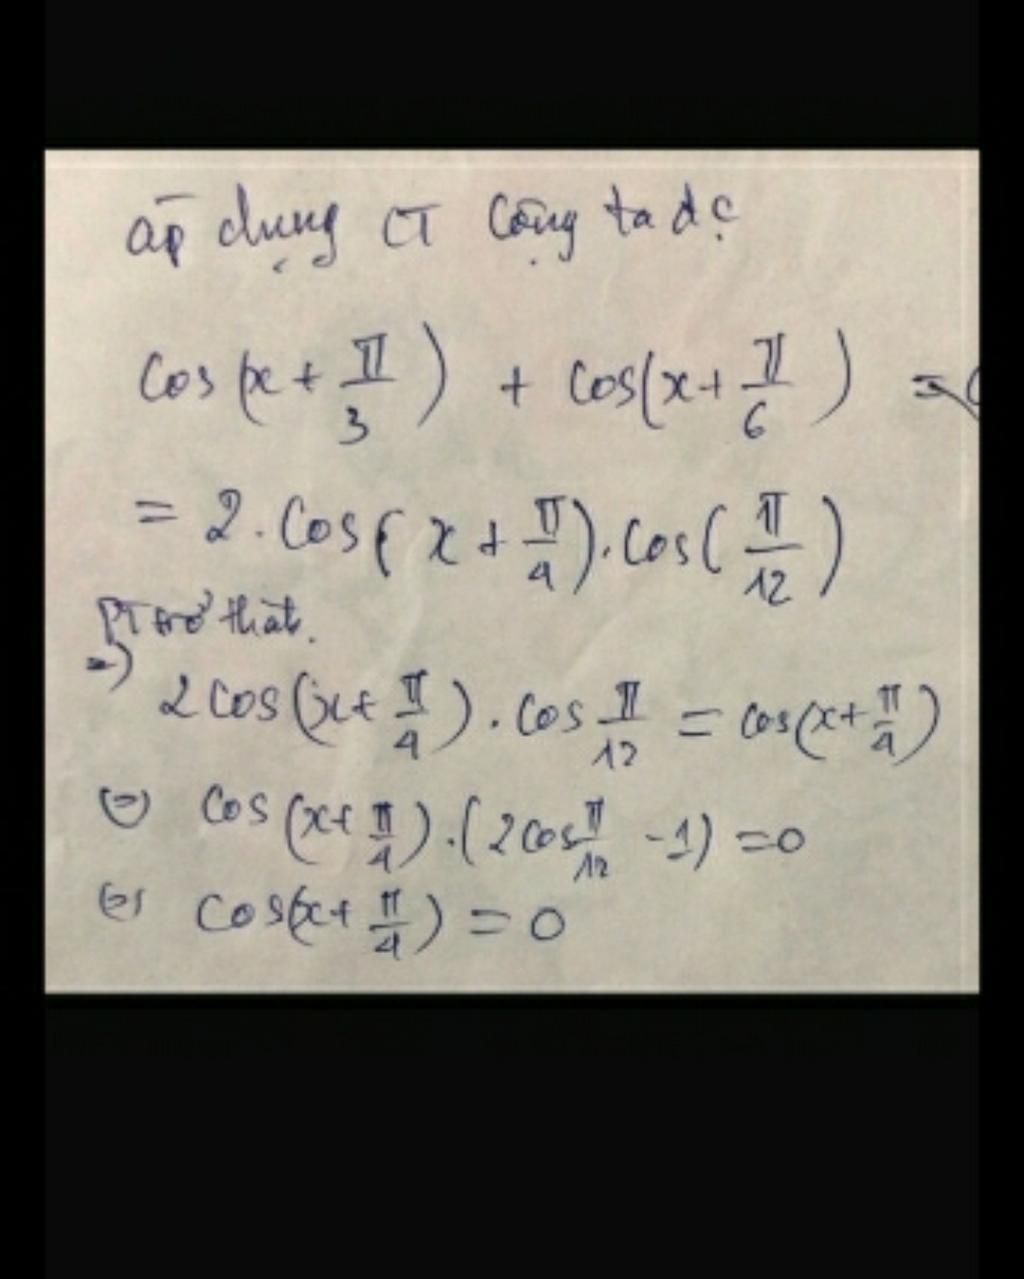 áp dụng CT Cộng ta đc
Cos(x + π/3) + Cos(x + π/6) =
= 2.Cos(x + π/4).Cos(π/12)
PT trở thành.
=> 2cos(x + π/4).cos π/12 = cos(x + π/4)
(=) Cos(x + π/4).(2cos π/12 - 1) = 0
(=) Cos(x + π/4) = 0